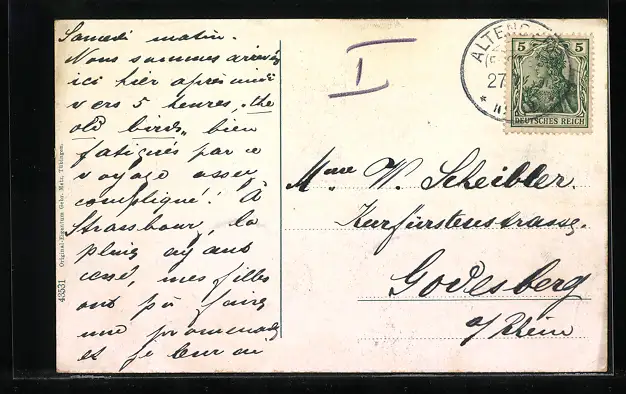 Samedi matin.
Nous sommes arrivés
ici hier après midi
vers 5 heures, "the
old birds" bien
fatigués par ce
voyage assez
compliqué! À
Strassbourg, la
pluie ayant
cessé, mes filles
ont pu faire
une promenade
et je leur ai
43531 Original-Eigentum Gebr. Metz, Tübingen.
I
ALTENS
27
5 5
DEUTSCHES REICH
Mme W. Scheibler.
Kurfürstenstrasse.
Godesberg
a/Rhein